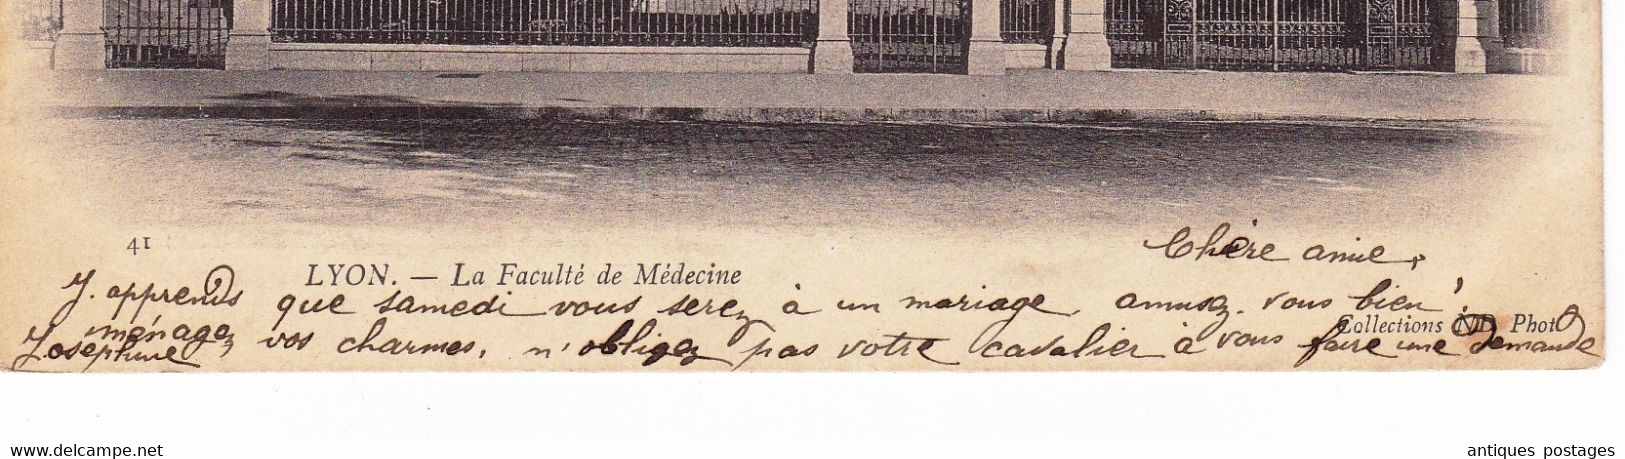 41
LYON. — La Faculté de Médecine
Chère amie,
J. apprends que samedi vous serez à un mariage, amusez. vous bien !
Collections ND Phot
ménagez vos charmes, n'obligez pas votre cavalier à vous faire une demande
Josephine
www.delcampe.net
antiques postages